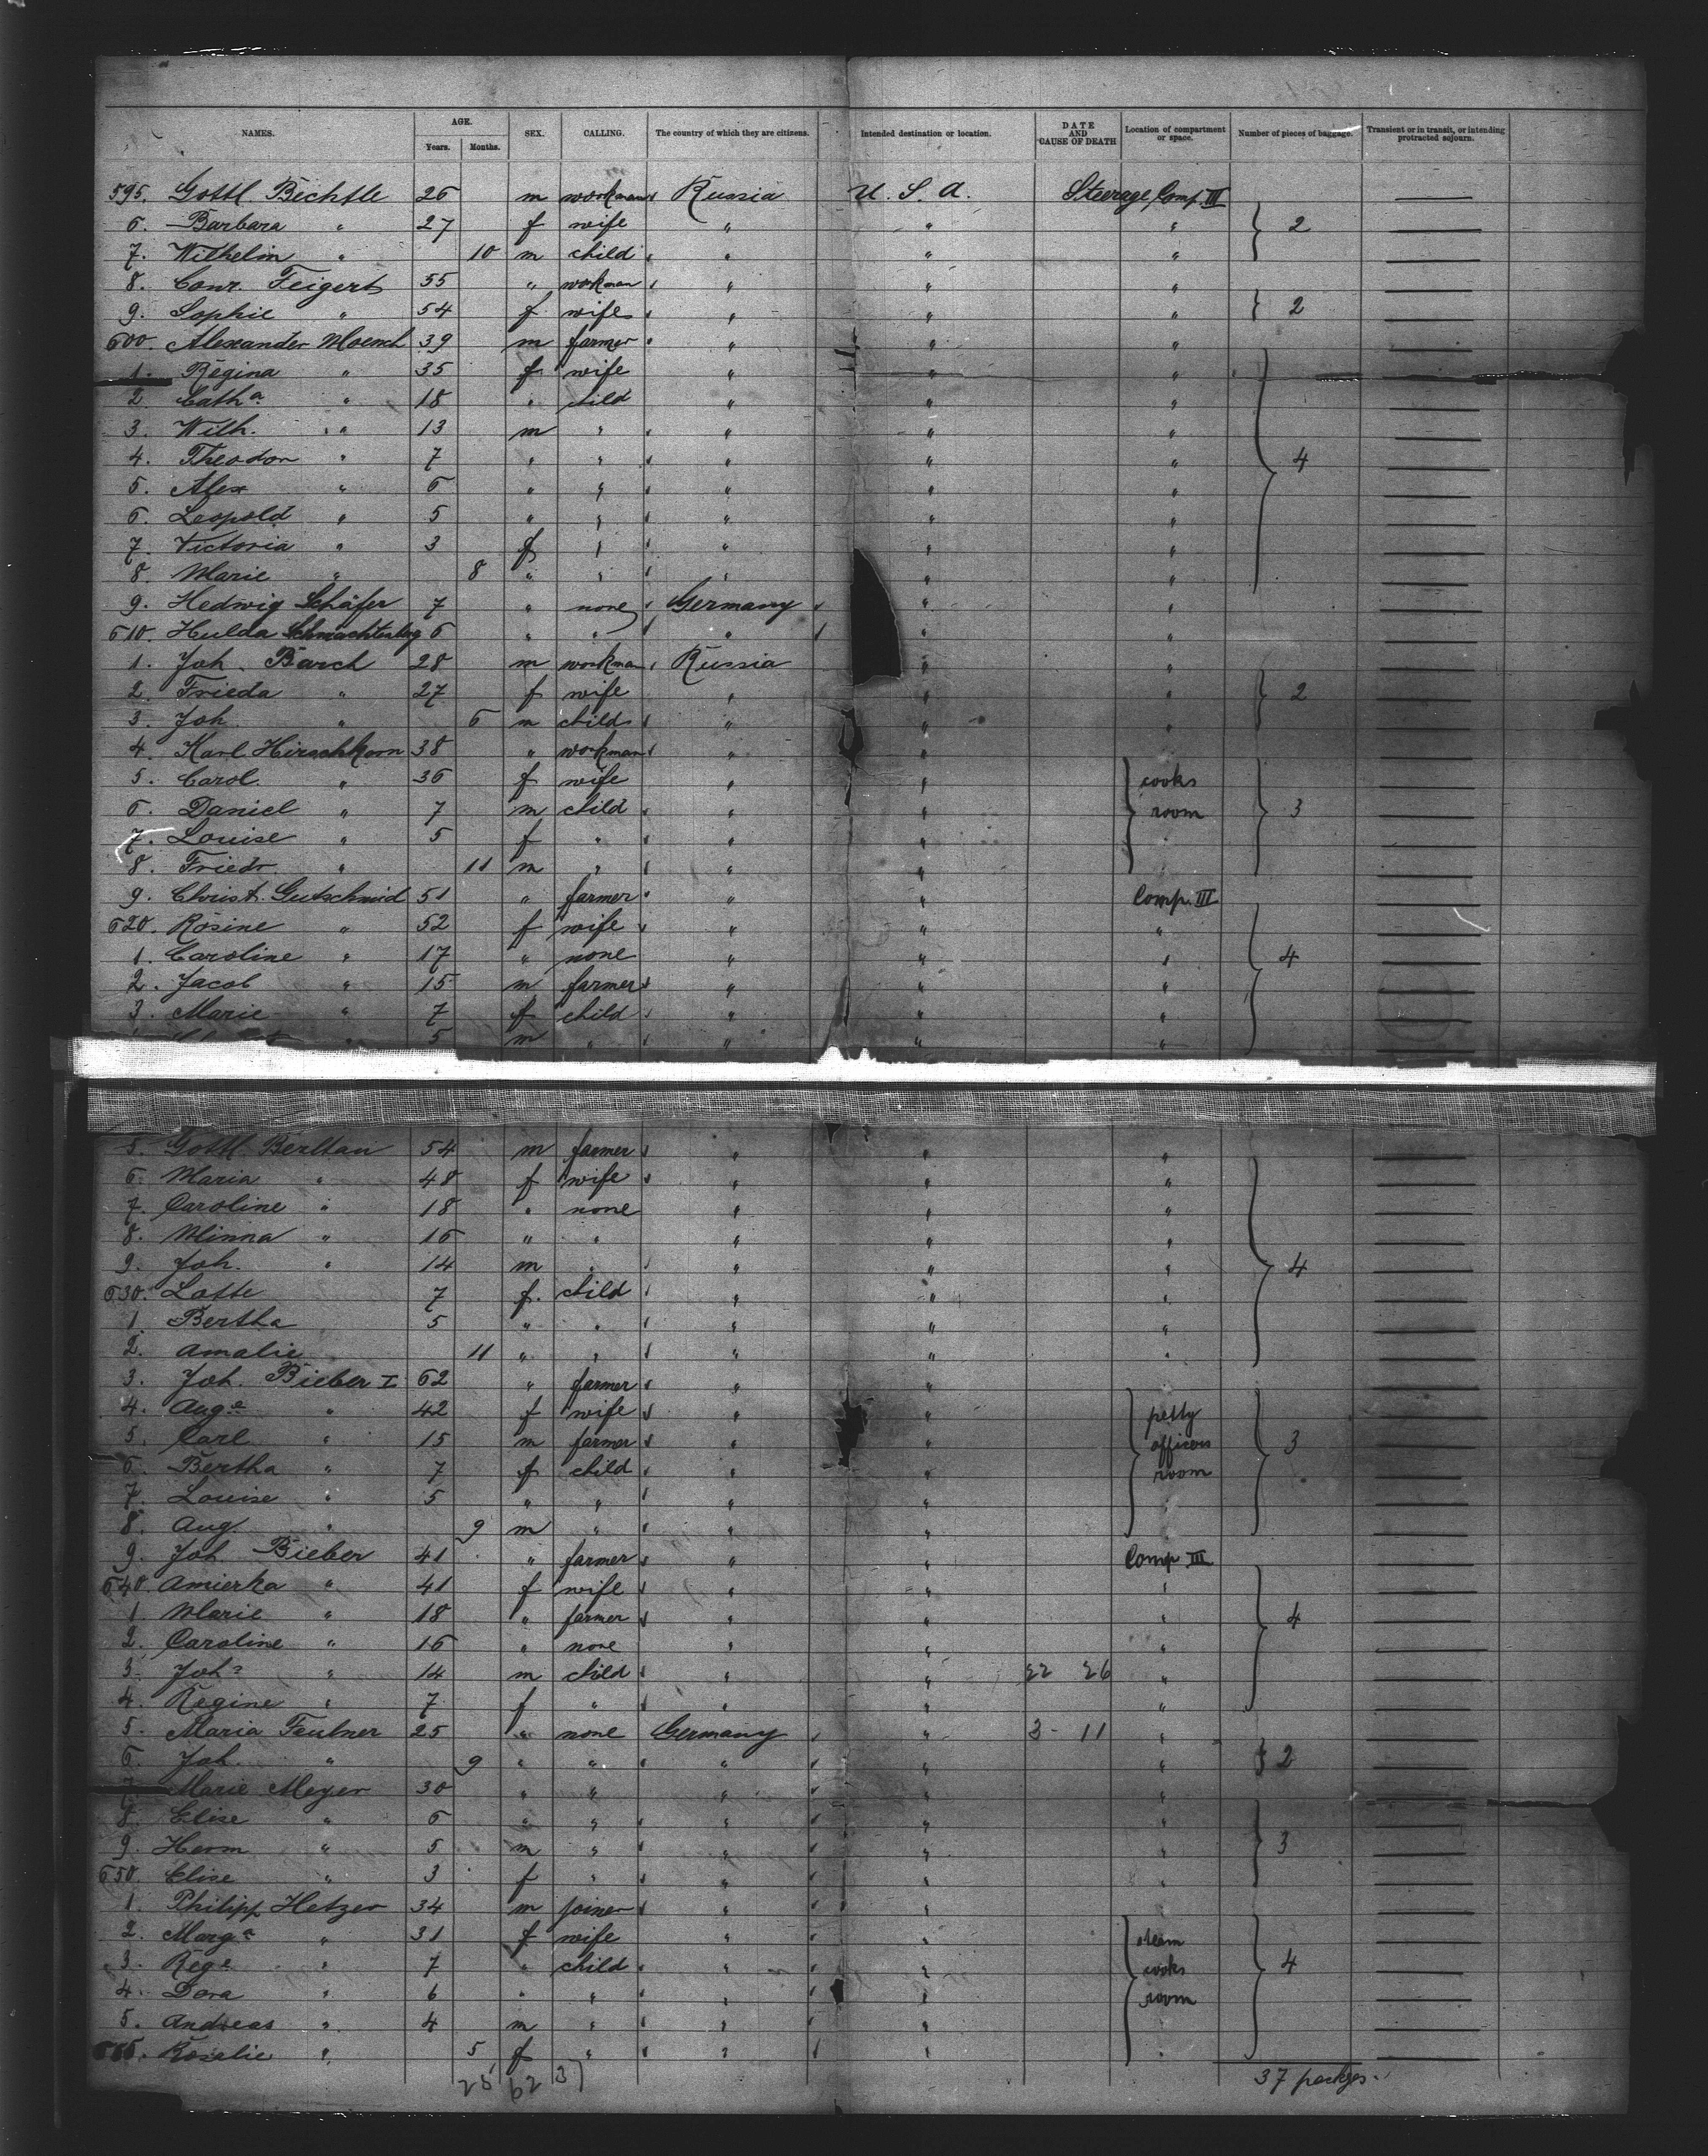 NAMES. AGE. Years. Months. SEX. CALLING. The country of which they are citizens. Intended destination or location. DATE AND CAUSE OF DEATH Location of compartment or space. Number of pieces of baggage. Transient or in transit, or intending protracted sojourn.
595. Gottl. Bechtle 26 m workman Russia U. S. A. Steerage Comp. III
6. Barbara " 27 f wife " " " 2
7. Wilhelm " 10 m child " " "
8. Conr. Feigert 55 " workman " " "
9. Sophie " 54 f wife " " " 2
600. Alexander Moench 39 m farmer " " "
1. Regina " 35 f wife " " "
2. Cath a. " 18 " child " " "
3. Wilh. " 13 m " " " "
4. Theodor " 7 " " " " " 4
5. Alex " 6 " " " " "
6. Leopold " 5 " " " " "
7. Victoria " 3 f " " " "
8. Marie " 8 " " " " "
9. Hedwig Schäfer 7 " none Germany " "
610. Hulda 6 " " " " "
1. Joh. Barch 28 m workman Russia " "
2. Frieda " 27 f wife " " " 2
3. Joh. " 6 m child " " "
4. Karl Hirschkorn 38 " workman " "
5. Carol. " 36 f wife " " cooks
6. Daniel " 7 m child " " room 3
7. Louise " 5 f " " " "
8. Friedr " 11 m " " " "
9. Christ. Gutschmid 51 " farmer " " Comp. III
620. Rosine " 52 f wife " " "
1. Caroline " 17 " none " " " 4
2. Jacob " 15 m farmer " " "
3. Marie " 7 f child " " "
" 5 m " " " "
5. Gottl. Berltan 54 m farmer " " "
6. Maria " 48 f wife " " "
7. Caroline " 18 " none " " "
8. Minna " 16 " " " " "
9. Joh. " 14 m " " " " 4
630. Lotte 7 f. child " " "
1 Bertha 5 " " " " "
2. Amalie 11 " " " " "
3. Joh. Bieber I 62 " farmer " "
4. Aug e " 42 f wife " " petty
5. Carl " 15 m farmer " " officers 3
6. Bertha " 7 f child " " room
7. Louise " 5 " " " " "
8. Aug. " 9 m " " " "
9. Joh. Bieber 41 " farmer " " Comp. III
640. Amierka " 41 f wife " " "
1. Marie " 18 " farmer " " " 4
2. Caroline " 16 " none " " "
3. Joh " 14 m child " " 22 26 "
4. Regine " 7 f " " " "
5. Maria Feulner 25 " none Germany " 3- 11 "
6. Joh. " 9 " " " " 2
7. Marie Meyer 30 " " " " "
8. Elise " 6 " " " " "
9. Herm " 5 m " " " " 3
650. Elise " 3 f " " " "
1. Philipp Hetzer 34 m joiner " "
2. Marg a " 31 f wife " " steam
3. Reg e " 7 " child " " cooks 4
4. Dora " 6 " " " " room
5. Andreas " 4 m " " " "
656. Rosalie " 5 f " " " "
25 62 37 37 packges.